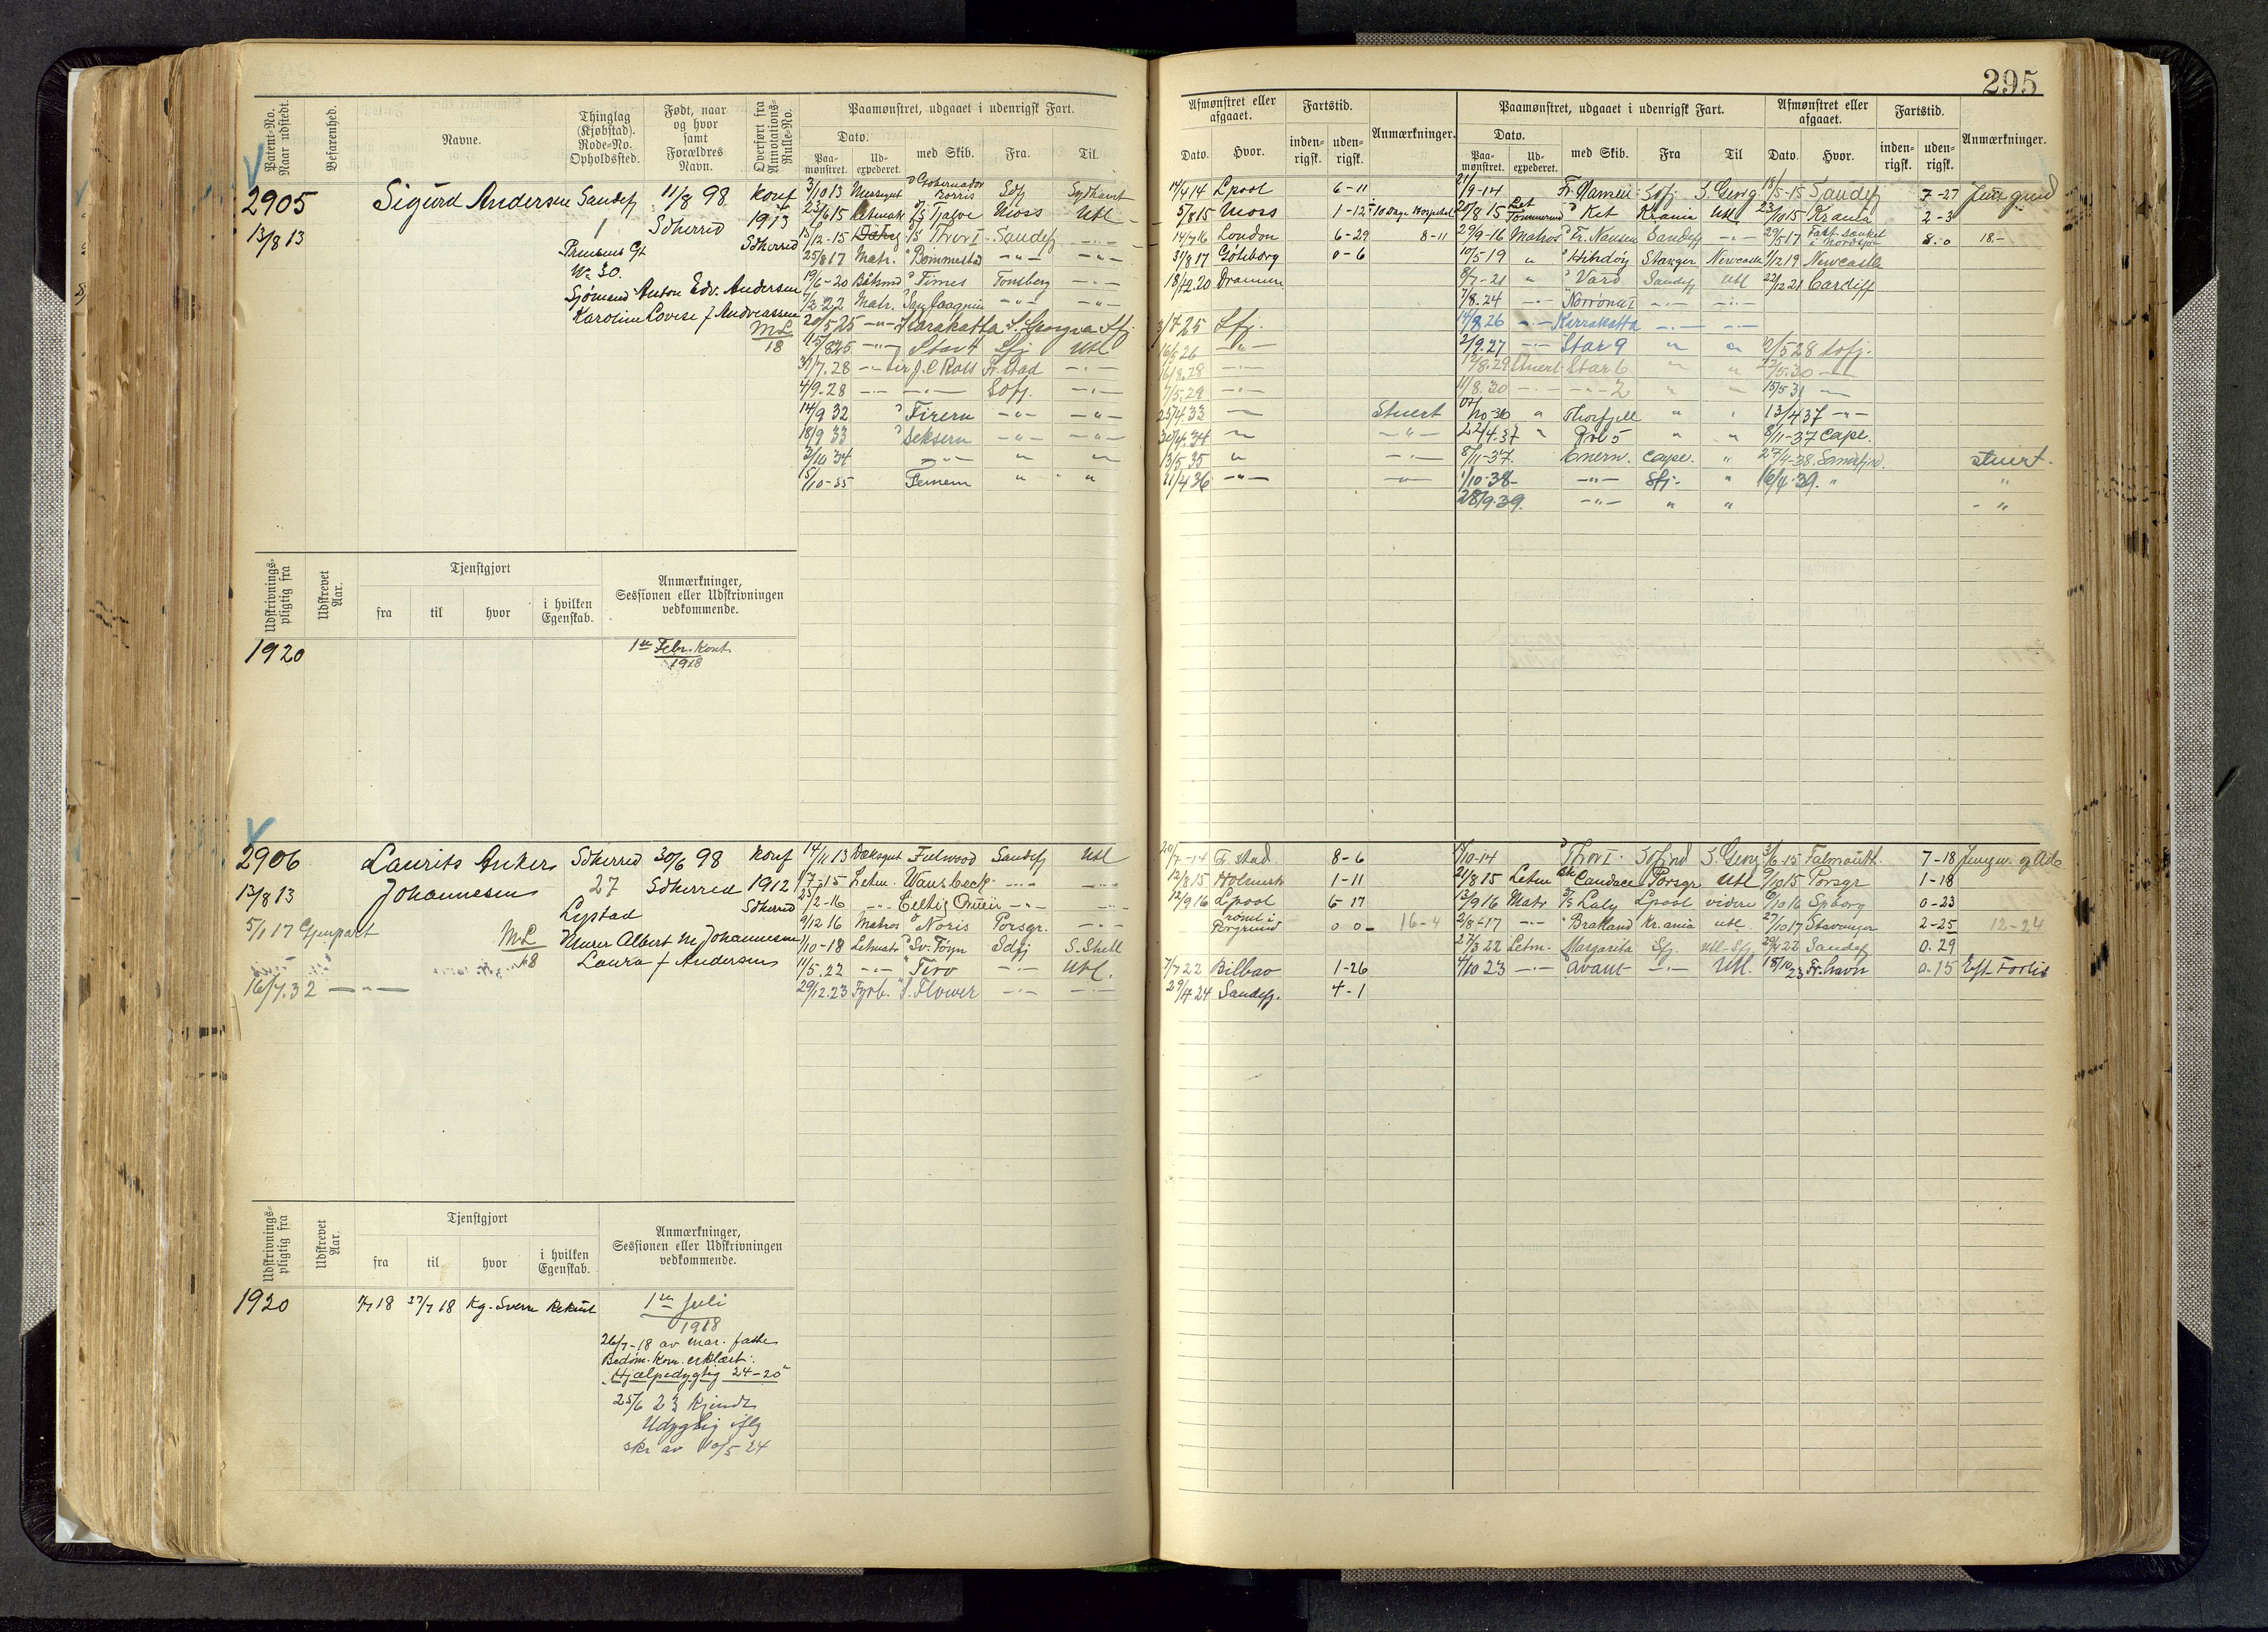 295
Patent-No. Naar udstedt.
Befarenhed.
Navne.
Thinglag (Kjøbstad). Rode-No. Opholdssted.
Født, naar og hvor samt Forældres Navn.
Overført fra Annotations-Rulle-No.
Paamønstret, udgaaet i udenrigsk Fart.
Dato.
Paa-mønstret.
Ud-expederet.
med Skib.
Fra.
Til.
Afmønstret eller afgaaet.
Dato.
Hvor.
Fartstid.
inden-rigsk.
uden-rigsk.
Anmærkninger.
Paamønstret, udgaaet i udenrigsk Fart.
Dato.
Paa-mønstret.
Ud-expederet.
med Skib.
Fra
Til
Afmønstret eller afgaaet.
Dato.
Hvor.
Fartstid.
inden-rigsk.
uden-rigsk.
Anmærkninger.
2905
13/8 13
Sigurd Andersen
Sandefj
1
11/8 98
Sdherred
Konf
1913
Sdherred
No 30.
Sjømand Anton Edv. Andersen
Karoline Lovise f Andreassen
ML
18
3/10 13 Messegut Gobernador Borries Sdfj Sydhavet
23/6 15 Letmatr Tjalve Moss Utl
/12-15 Thor I Sandefj -"-
25/8 17 Matr. Bommestad -"- -"-
19/6-20 Baksmd Fimes Tonsberg -"-
/3 22 Matr. San Joaquin -"- -"-
20/5 25 -"- Karakatta S. Georgia Sfj.
15/8 25 -"- Star 4 Sfj Utl
31/7.28 J. C Ross Fr.stad -"-
4/9.28 -"- -"- Sdfj. -"-
14/9 32 Firern -"- -"-
18/9 33 Seksern -"- -"-
3/10 34 -"- " "
5/10-35 Femern " "
14/4 14 Lpool 6-11
5/8 15 Moss 1-12 10 Dage Hospital
14/7 16 London 6-29 8-11
31/8 17 Göteborg 0-6
18/12.20 Drammen
3/7 25 Sfj.
16/5 26 -"-
16/8.28 -"-
7/5.29 -"-
25/4.33 -"- Stuert
30/4.34 -"- -"-
13/5 35 " -"-
11/4 36 -"- -"-
21/9-14 Fr. Nansen Sdfj S. Georg 18/5-15 Sandefj 7-27 Jungmd
20/8 15 Let Tømmermd Kit Krania Utl 23/10 15 Krania 2-3
29/9-16 Matros Fr. Nansen Sandefj -"- 29/5 17 Fart. sænket i Nordsjø 8-0 18.-
10/5-19 " Stavger Newcastle 1/12 19 Newcastle
8/7-21 " Vard Sandefj Utl 22/12 21 Cardiff
7/8.24 -"- Norrøna I -"- -"-
14/8 26 -"- Karrakatta -"- -"-
2/9.27 -"- Star 9 " " 12/5 28 Sdfj.
12/8.29 Stuert Star 6 " " 22/5.30 -"-
11/8.30 -"- -"- 2 " " 15/5 31 -"-
/10-36 " Thorfjell " " 13/4 37 -"-
22/4.37 " Pol 5 " " 8/11-37 Cape.
8/11-37. Enern. Cape. " 27/4-38. Sandefjord. stuert.
1/10-38 -"- Sfj. " 16/4.39. " "
28/9.39. -"- " " "
Udskrivnings-pligtig fra
Udskrevet Aar.
Tjenstgjort
fra
til
hvor
i hvilken Egenskab.
Anmærkninger, Sessionen eller Udskrivningen vedkommende.
1920
1ste Febr. Kont.
1918
2906
13/8 13
5/1 17 Gjenpart
16/7.32 -"-
Laurits Anker
Johannesen
Sdherred
27
Lystad
30/6 98
Sdherred
Konf
1912
Sdherred
Murer Albert M. Johannesen
Laura f Andersen
ML
18
14/11 13 Dæksgut Feelwood Sandefj Utl
/7-15 Letm. Wansbeck -"- -"-
25/2-16 -"- Celtic Queen -"- -"-
9/12 16 Matros Noris Porsgr. -"-
1/10-18 Letmatr Sv. Foyn Sdfj S. Shetl
11/5.22 -"- Tiro -"- Utl.
29/12.23 Fyrb. S. Flower -"- -"-
20/7-14 Fr.stad 8-6
12/8 15 Holmestr 1-11
12/9 16 Lpool 6-17
rømt i Porsgrund 0-0 16-4
7/7 22 Bilbao 1-26
29/4 24 Sandefj. 4-1
/10-14 Thor I. Sdfjord S. Georg 3/6-15 Falmouth 7-18
21/8 15 Letm Bk Candace Porsgr Utl 9/10 15 Porsgr 1-18
13/9 16 Matr S/S Laly Lpool videre 6/10 16 Spborg 0-23
2/8-17 -"- Bratland Kr.ania utl 27/10 17 Stavanger 2-25 12-24
27/3 22 Letm. Margarita Sfj. utl-Sfj 29/4 22 Sandefj 0-29
4/10 23 -"- Avant -"- Utl. 18/10 23 Fr.havn 0-15 Eft Fortis
Udskrivnings-pligtig fra
Udskrevet Aar.
Tjenstgjort
fra
til
hvor
i hvilken Egenskab.
Anmærkninger, Sessionen eller Udskrivningen vedkommende.
1920
1/7 18 27/7 18 Kg. Sverre Rekrut
1ste Juli
1918
26/7-18 av mar. faste
Bedøm. Kom. erklært:
"Hjælpedygtig 24-20"
25/6 23 Kjendt
Udygtig iflg
skr av 10/5 24